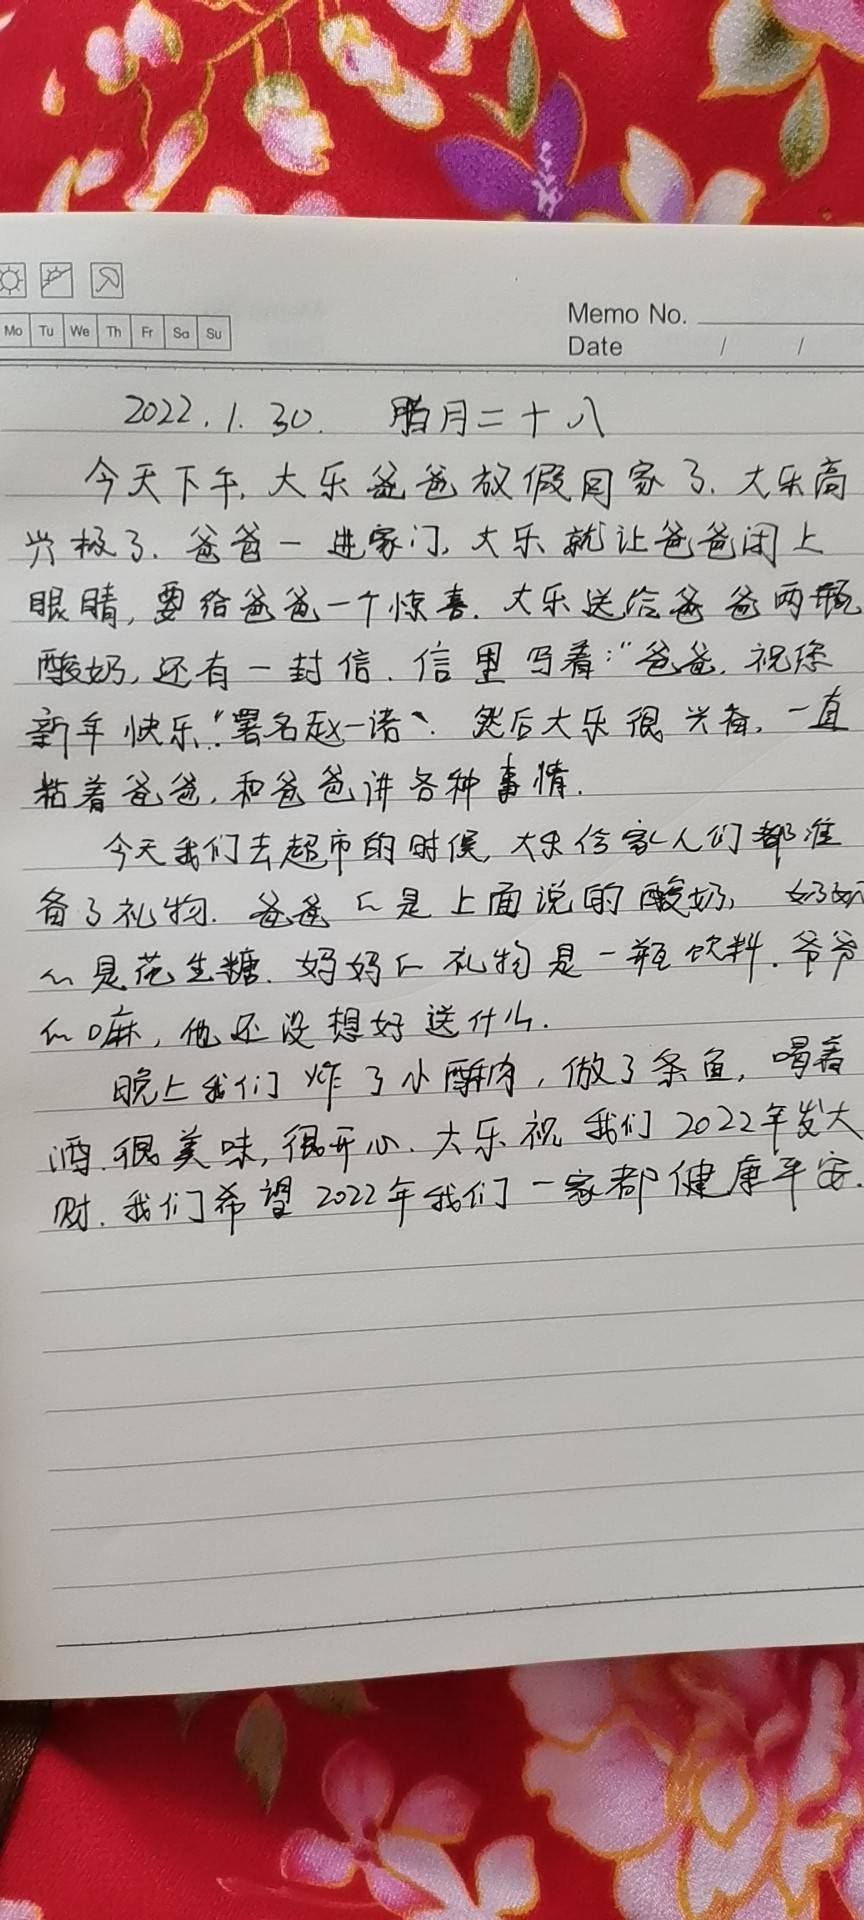 Mo Tu We Th Fr Sa Su
Memo No.
Date / /
2022.1.30. 腊月二十八
今天下午,大乐爸爸放假回家了.大乐高
兴极了.爸爸一进家门,大乐就让爸爸闭上
眼睛,要给爸爸一个惊喜.大乐送给爸爸两瓶
酸奶,还有一封信.信里写着:“爸爸.祝您
新年快乐.”署名赵一诺.然后大乐很兴奋,一直
粘着爸爸,和爸爸讲各种事情.
今天我们去超市的时候,大乐给家人们都准
备了礼物.爸爸的是上面说的酸奶,奶奶
的是花生糖.妈妈的礼物是一瓶饮料.爷爷
的嘛,他还没想好送什么.
晚上我们炸了小酥肉,做了条鱼,喝着
酒.很美味,很开心.大乐祝我们2022年发大
财.我们希望2022年我们一家都健康平安.